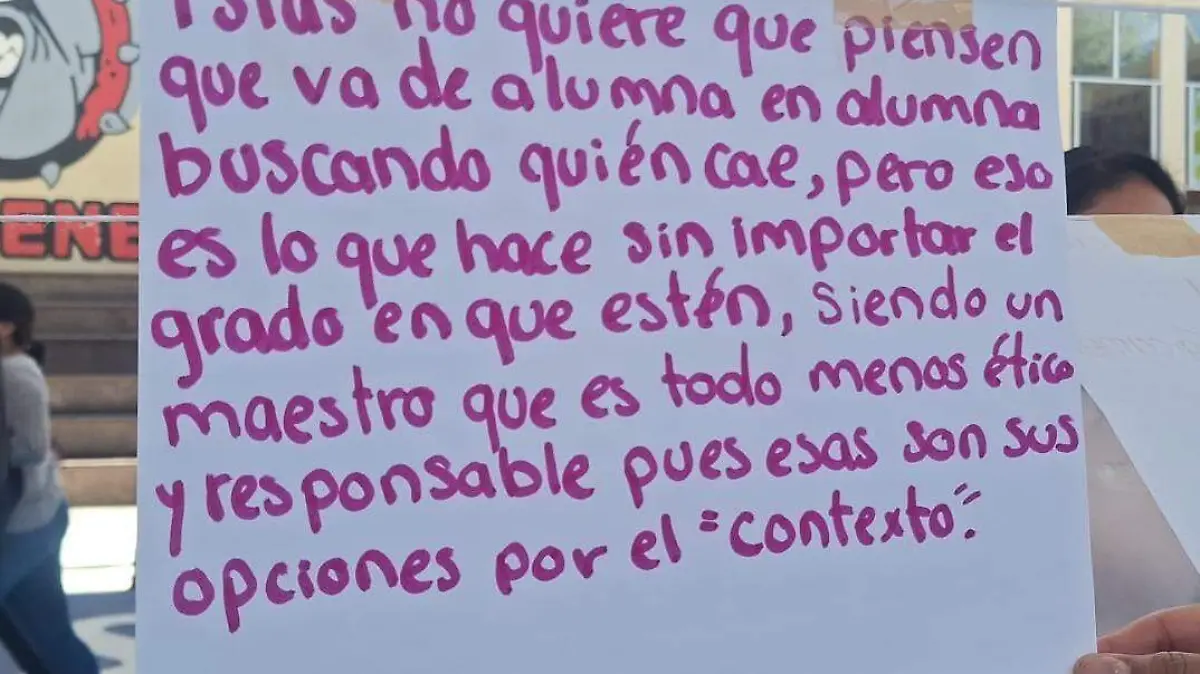 no quiere que piensen
que va de alumna en alumna
buscando quién cae, pero eso
es lo que hace sin importar el
grado en que estén, siendo un
maestro que es todo menos ético
y responsable pues esas son sus
opciones por el "contexto".
ENE